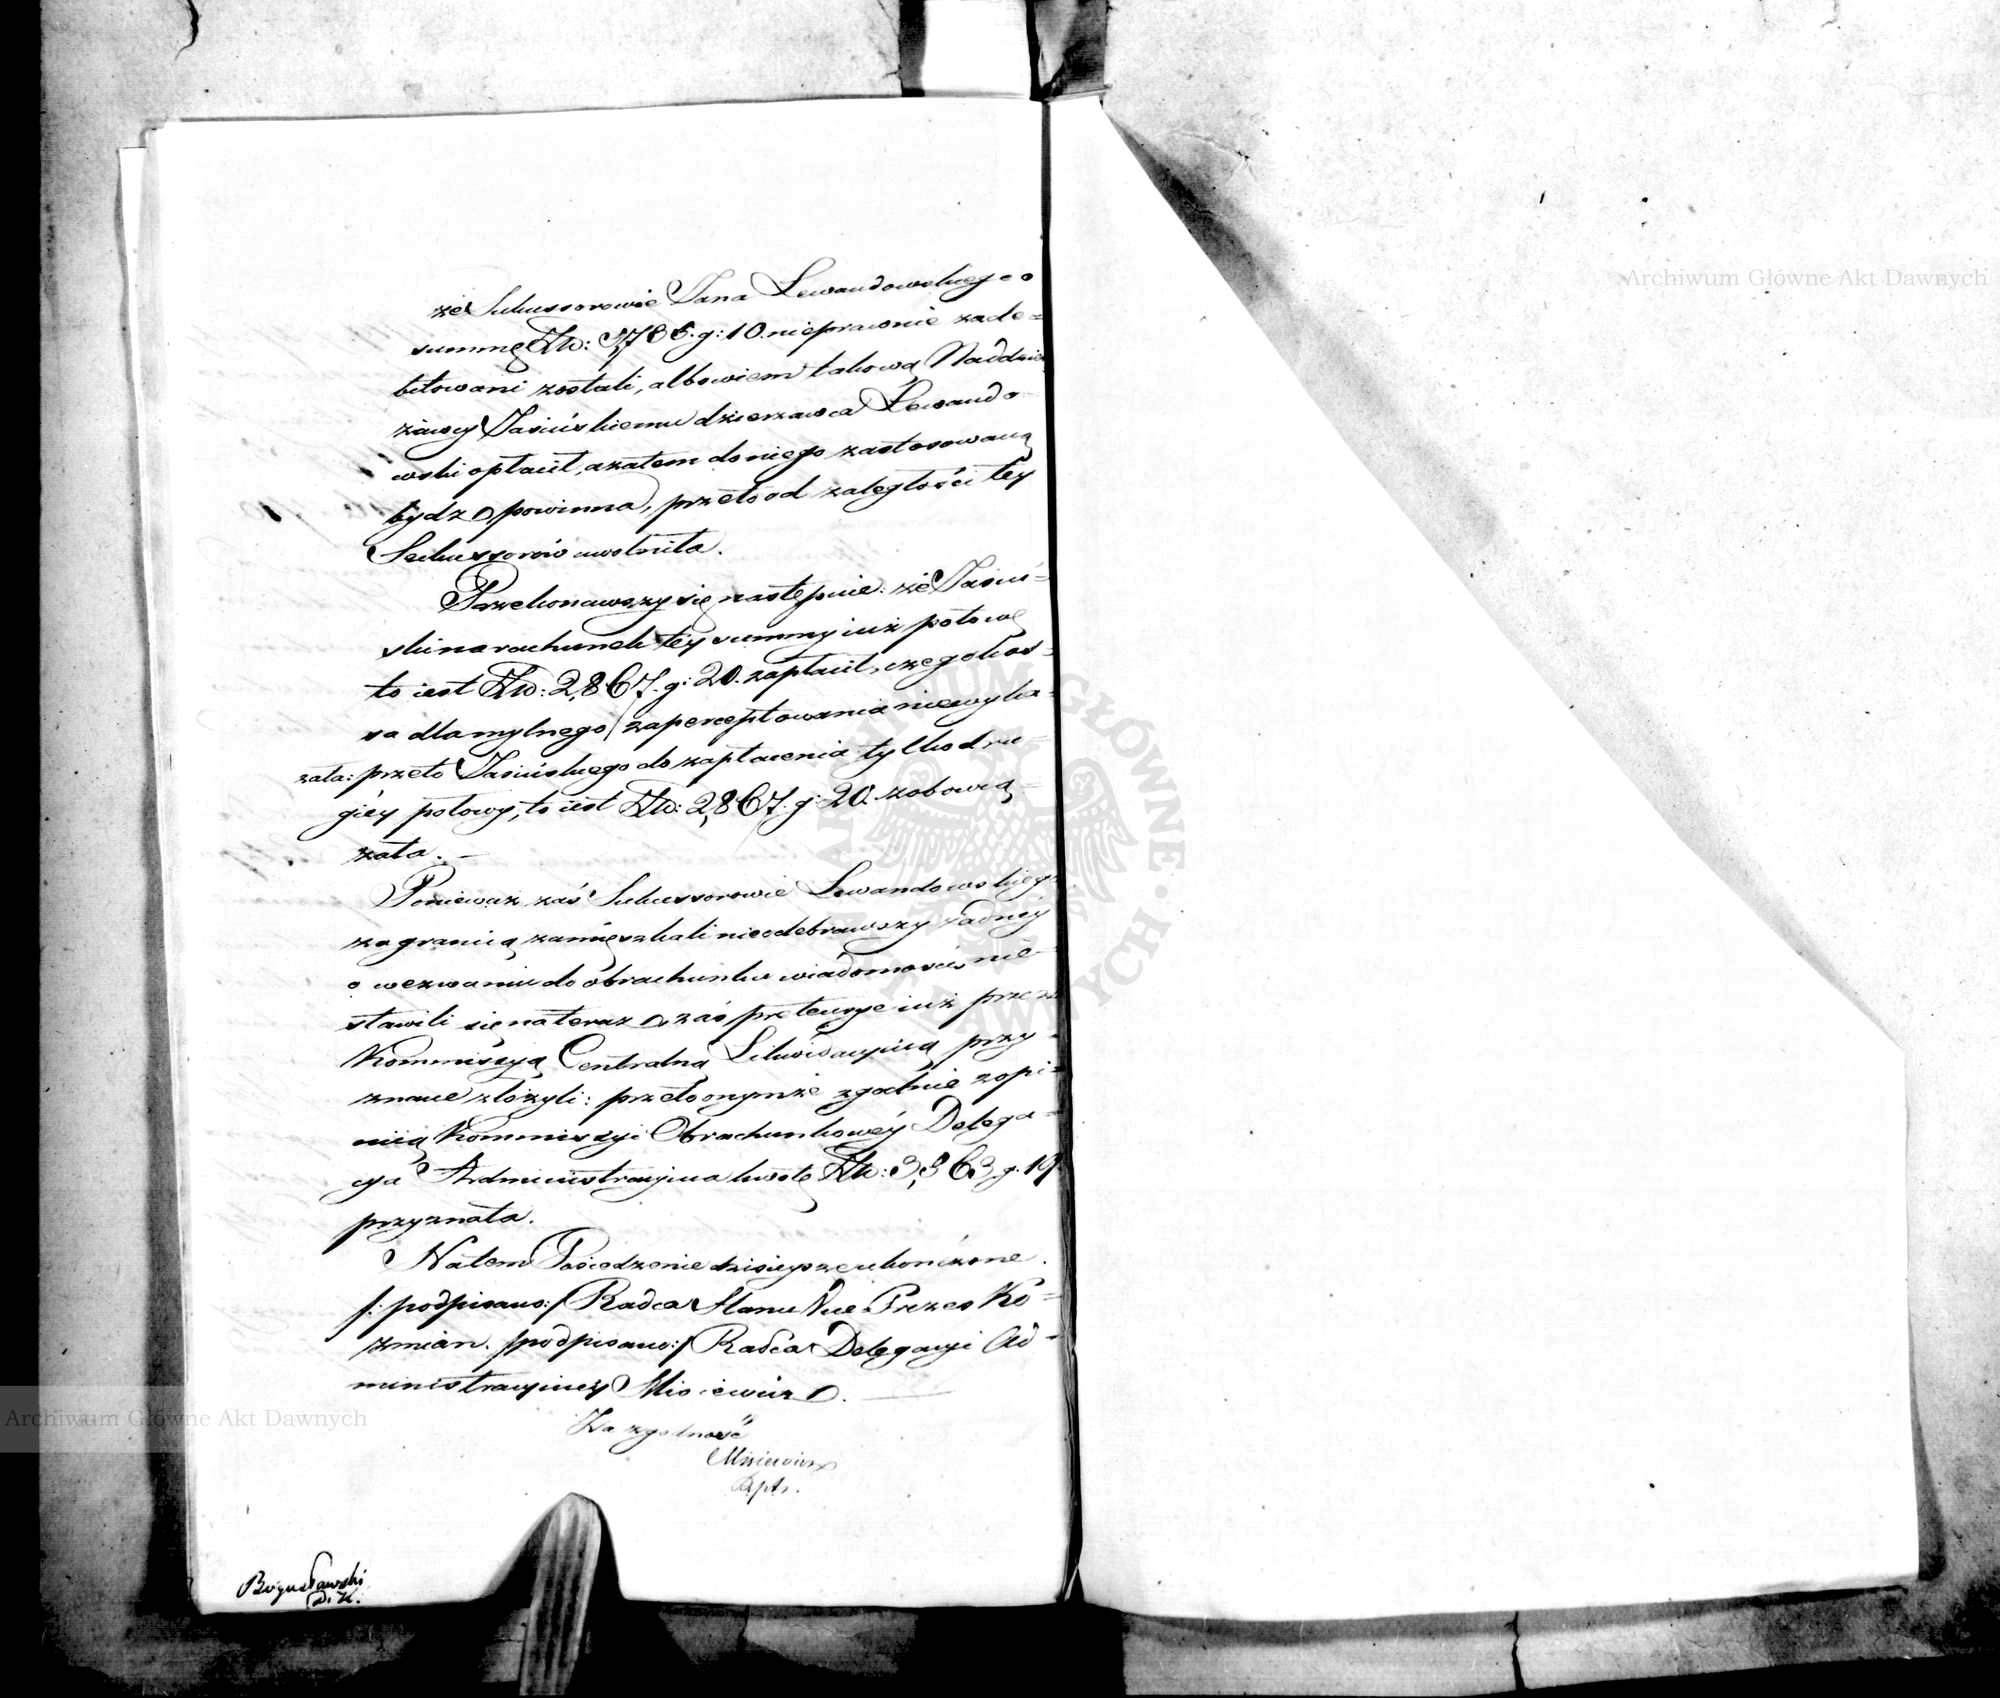 że Sukcessorowie Jana Lewandowskiego o
summę Złp: 5,735. g: 10. nieprawnie zade=
bitowani zostali, albowiem takową Naddzier
żawcy Jasińskiemu dzierzawca Lewando
wski opłacił, a zatem do niego zastosowaną
bydź powinna, przeto od zaległości tey
Sukcessorów uwolniła.
Przekonawszy się następnie: że Jasiń=
ski na rachunek tey summy iuż połowę
to iest Złp: 2,867. g: 20. zapłacił, czego kas=
sa dla mylnego zaperceptowania niewyka=
zała: przeto Jasińskiego do zapłacenia tylko dru=
giéy połowy, to iest Złp: 2,867. g: 20. zobowią=
zała. —
Ponieważ zaś Sukcessorowie Lewandowskieg
za granicą zamięszkali nieodebrawszy żadnéy
o wezwaniu do obrachunku wiadomości, nie
stawili się na teraz, zaś pretensye iuż przez
Kommissyą Centralną Likwidacyiną przy=
znane złożyli: przeto onymże zgodnie z opi=
nią Kommissyi Obrachunkowéy Delega=
cya Administracyina kwotę Złp: 3,363. g. 19.
przyznała.
Na tem Posiedzenie dzisieysze ukończone.
/: podpisano:/ Radca Stanu Vice Prezes Ko=
zmian. /podpisano:/ Radca Delegacyi Ad=
ministracyiney Misiewicz. —
Za zgodność
Misiewicz
Bogusławski
Archiwum Główne Akt Dawnych
Archiwum Główne Akt Dawnych
ARCHIWUM GŁÓWNE · AKT DAWNYCH ·